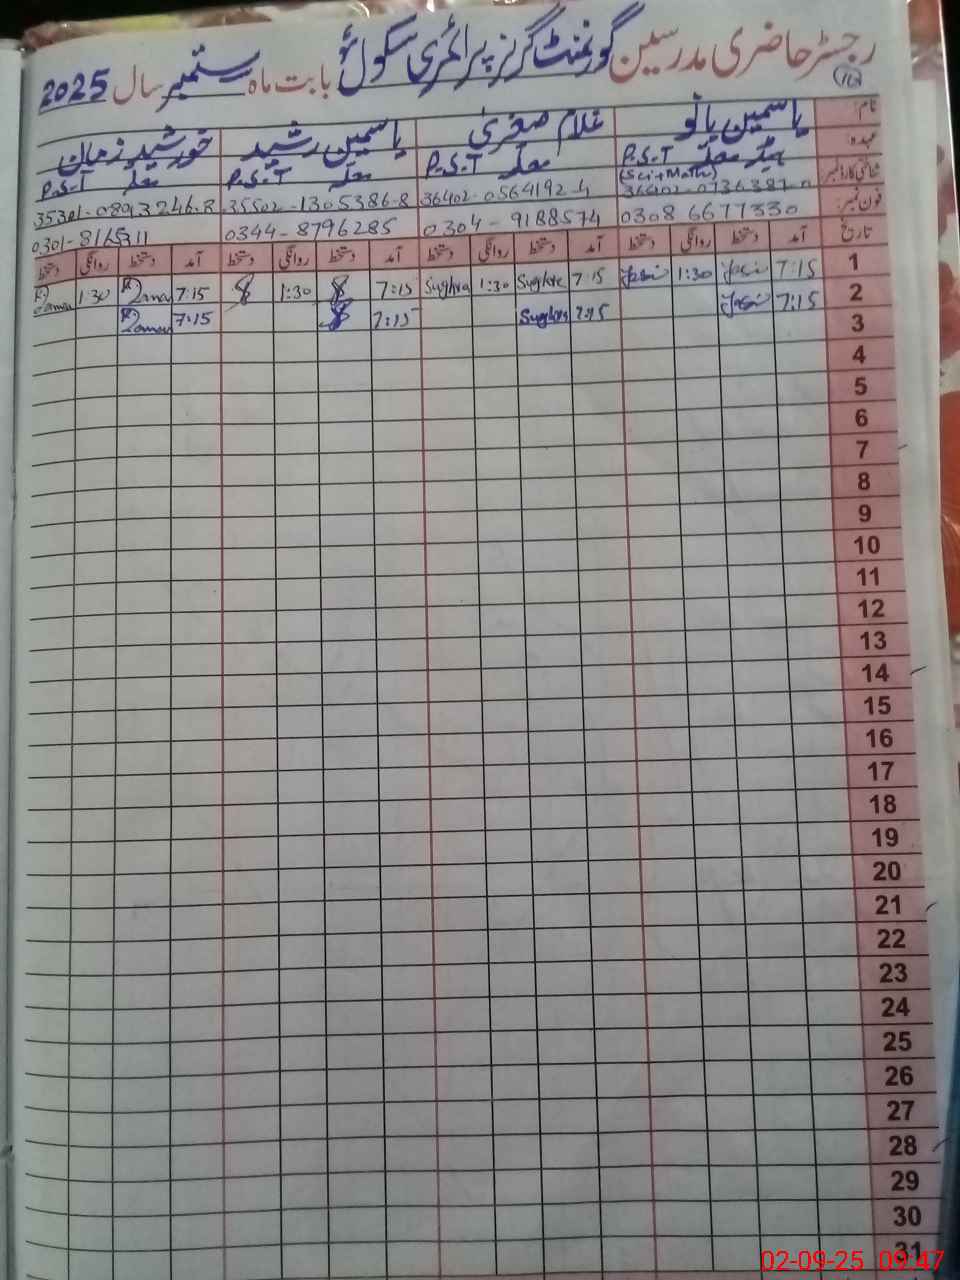 رجسٹر حاضری مدرسین گورنمنٹ گرلز پرائمری سکول بابت ماہ ستمبر سال 2025
نام: یاسمین بانو غلام صغریٰ یاسمین رشید خورشید زمان
عہدہ: ہیڈ معلمہ P.S.T (Sci+Math) معلمہ P.S.T معلمہ P.S.T معلمہ P.S.T
شناختی کارڈ نمبر: 36402-0564192-4 35502-1305386-8 35301-0893246-8
فون نمبر: 0308 6677330 0304-9188574 0344-8796285
تاریخ آمد دستخط روانگی دستخط آمد دستخط روانگی دستخط آمد دستخط روانگی دستخط آمد دستخط روانگی دستخط
1 7:15 1:30 7:15 Sughra 1:30 Sughra 7:15 1:30 7:15 Zaman 1:30 Zaman
2 7:15 7:15 Sughra 7:15 7:15 Zaman
3
4
5
6
7
8
9
10
11
12
13
14
15
16
17
18
19
20
21
22
23
24
25
26
27
28
29
30
31
02-09-25 09:47